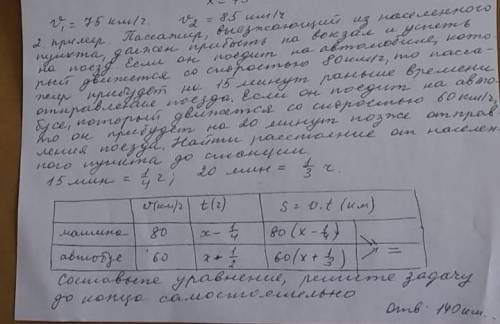 v₁ = 75 км/г v₂ = 85 км/г
2. пример. Пассажир, выезжающий из населенного
пункта, должен прибыть на вокзал и успеть
на поезд. Если он поедит на автомобиле, кото-
рый движется со скоростью 80 км/г, то пасса-
жир прибудет на 15 минут раньше времени
отправления поезда. Если он поедит на авто-
бусе, который движется со скоростью 60 км/г,
то он прибудет на 20 минут позже отправ-
ления поезда. Найти расстояние от населен-
ного пункта до станции.
15 мин = 1/4 г; 20 мин = 1/3 г.
v(км/г) t(г) S = v.t (км)
машина 80 x - 1/4 80(x - 1/4)
автобус 60 x + 1/3 60(x + 1/3) =
Составьте уравнение, решите задачу
до конца самостоятельно
Отв: 140 км.